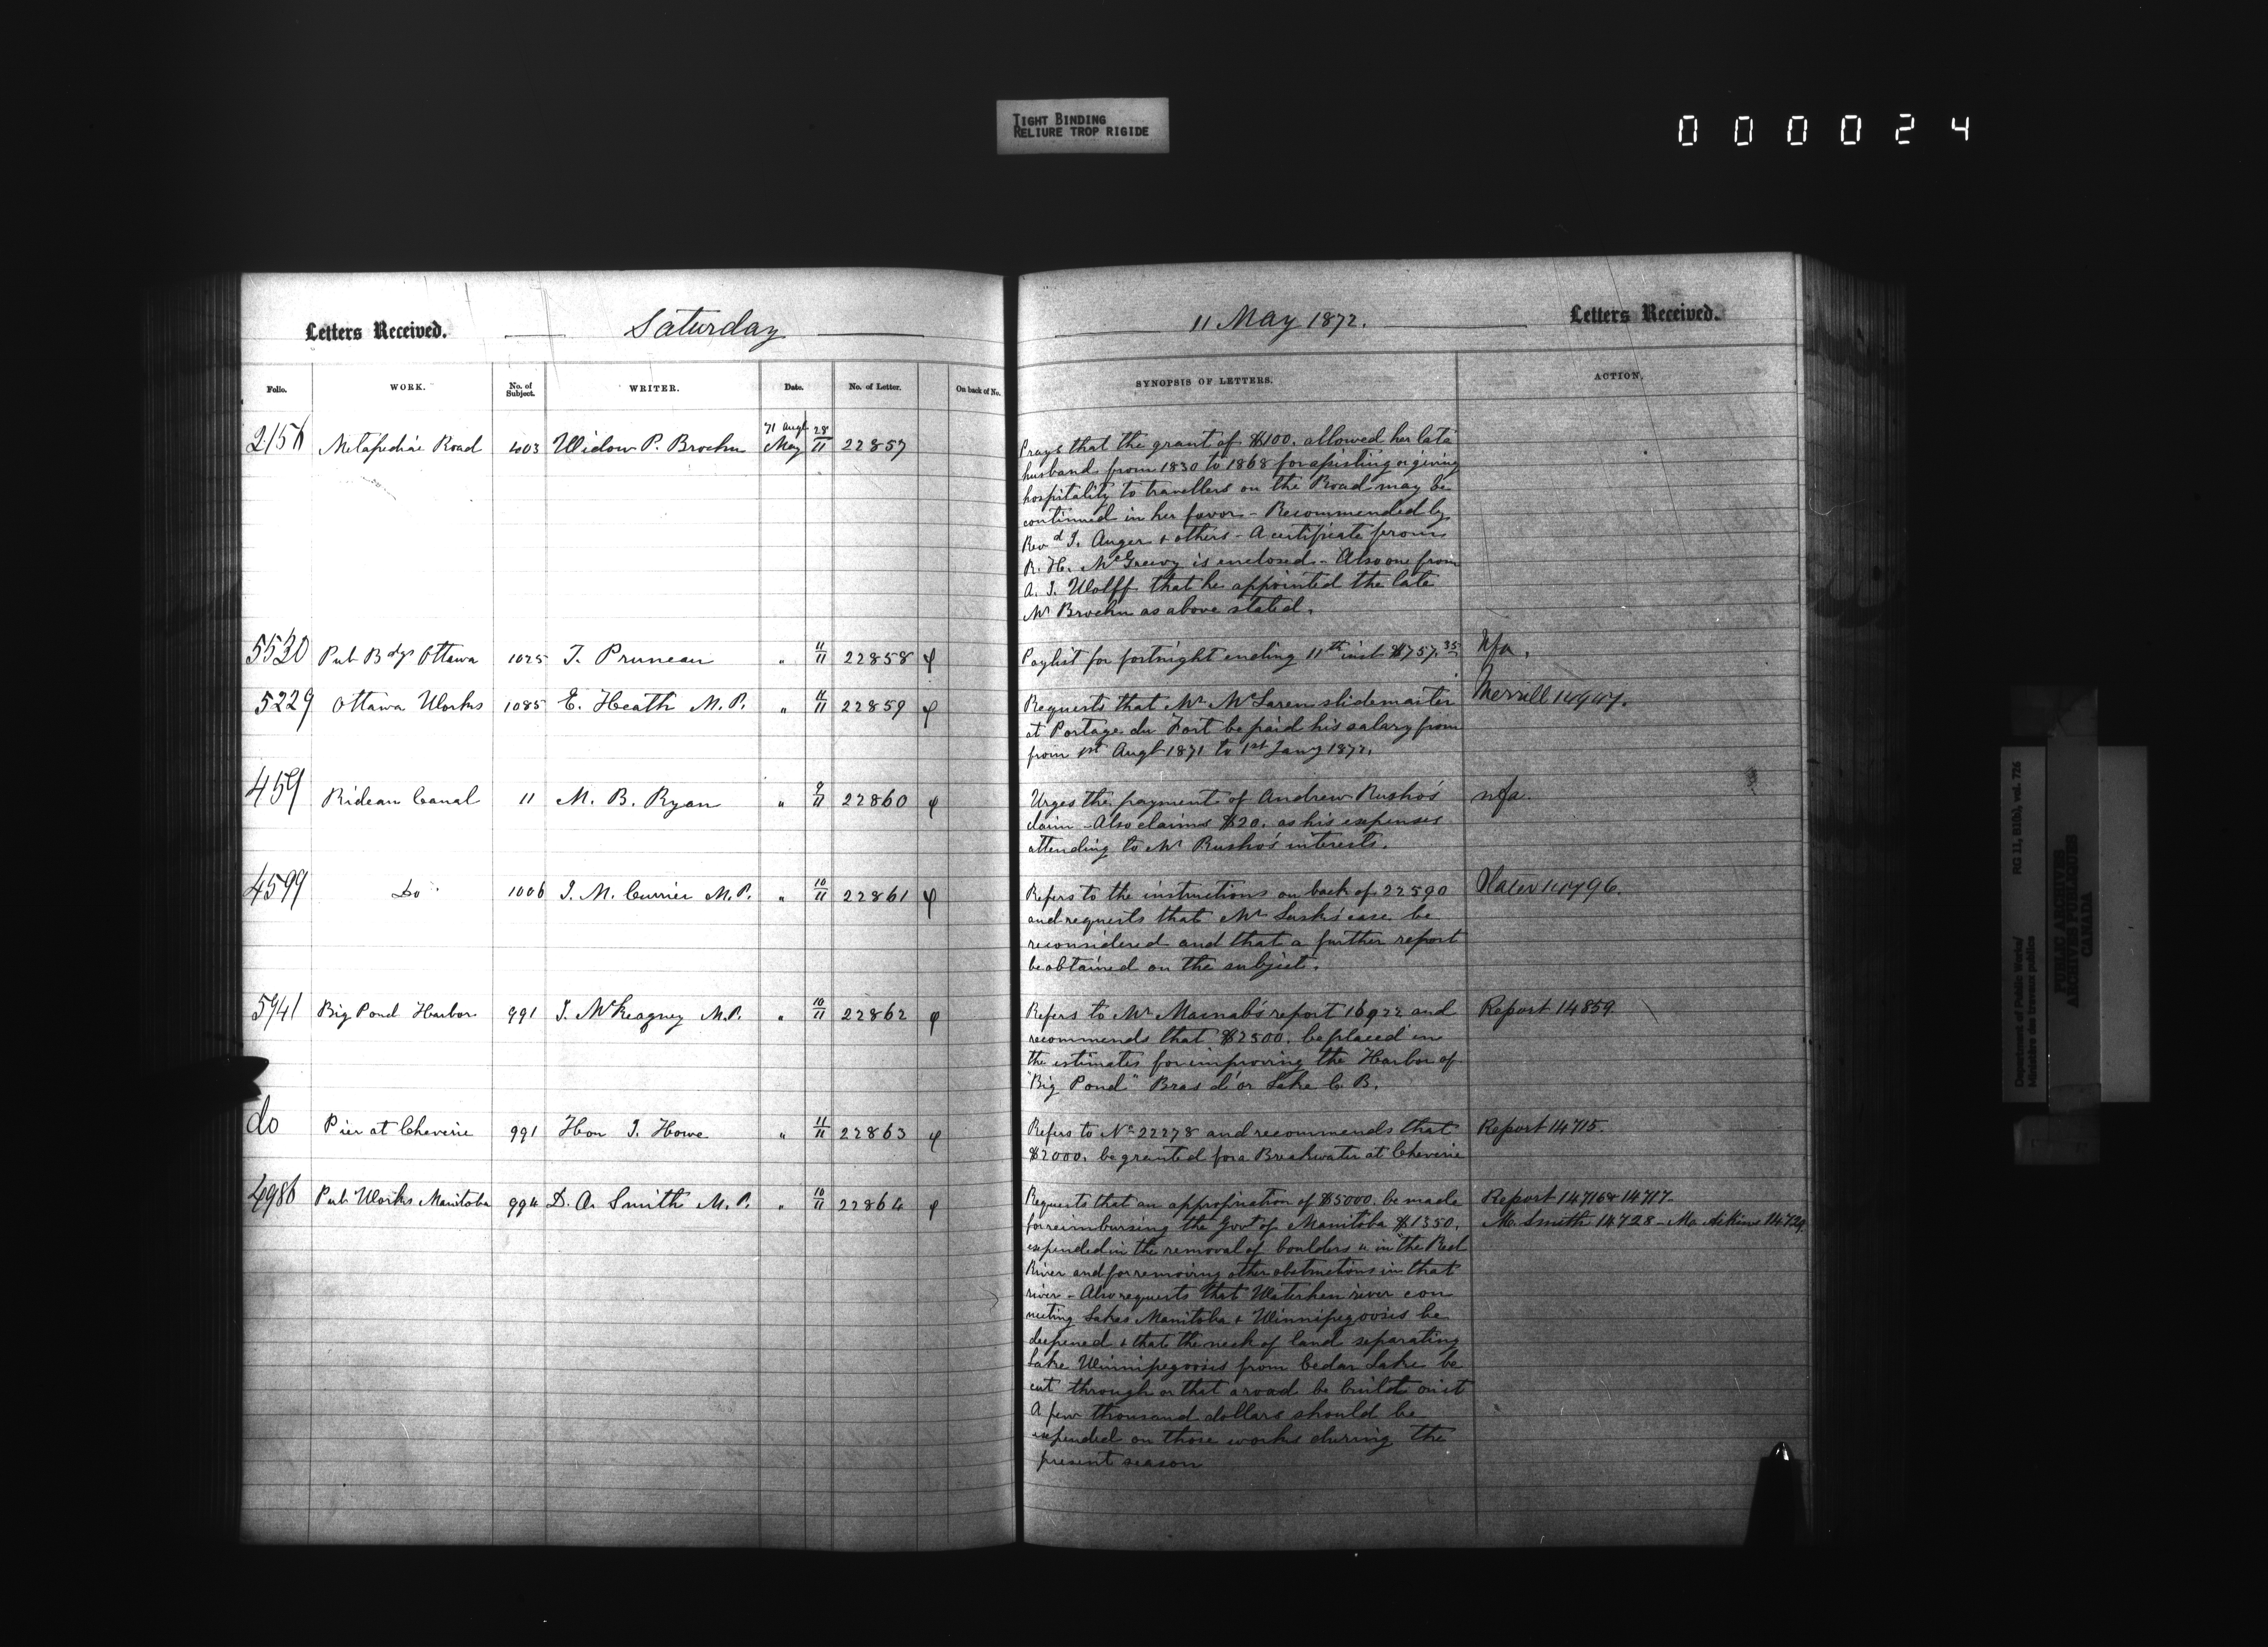 TIGHT BINDING
RELIURE TROP RIGIDE
000024
Letters Received. Saturday
11 May 1872. Letters Received.
Folio. WORK. No. of Subject. WRITER. Date. No. of Letter. On back of No.
SYNOPSIS OF LETTERS. ACTION.
2156 Metapediac Road 403 Widow P. Brochu 71 Augt 28 May 11 22857
Prays that the grant of $100. allowed her late
husband from 1830 to 1868 for assisting & giving
hospitality to travellers on the Road may be
continued in her favor - Recommended by
Revd J. Auger & others - A certificate from
R. H. McGreevy is enclosed - Also one from
A. J. Wolff that he appointed the late
Mr Brochu as above stated.
5530 Pub Bdgs Ottawa 1025 T. Pruneau " 11/11 22858 φ
Paylist for fortnight ending 11th inst $757.35 Nfa.
5229 Ottawa Works 1085 E. Heath M.P. " 11/11 22859 φ
Requests that Mr McLaren slidemaster Merrill
at Portage du Fort be paid his salary from
from 1st Augt 1871 to 1st Jany 1872.
459 Rideau Canal 11 M. B. Ryan " 9/11 22860 φ
Urges the payment of Andrew Rusho's nfa.
claim - Also claims $20. as his expenses
attending to Mr Rusho's interests.
4599 Do 1006 J. M. Currier M.P. " 10/11 22861 φ
Refers to the instructions on back of 22590 Slater
and requests that Mr case be
reconsidered and that a further report
be obtained on the subject.
5941 Big Pond Harbor 991 J. McKeagney M.P. " 10/11 22862 φ
Refers to Mr Macnab's report 16922 and Report 14859
recommends that $2500. be placed in
the estimates for improving the Harbor of
"Big Pond" Bras d'or Lake C. B.
do Pier at Cheverie 991 Hon J. Howe " 11/11 22863 φ
Refers to No 22278 and recommends that Report 14715.
$2000. be granted for a Breakwater at Cheverie
4986 Pub Works Manitoba 994 D. A. Smith M.P. " 10/11 22864 φ
Requests that an appropriation of $5000. be made Report 14716 & 14717.
for reimbursing the Govt of Manitoba $1350. Mr. Smith 14728 - Mr. Aikins 14729.
expended in the removal of boulders &c in the Red
River and for removing other obstructions in that
river - Also requests that Waterhen river con
necting Lakes Manitoba & Winnipegoosis be
deepened & that the neck of land separating
Lake Winnipegoosis from Cedar Lake be
cut through or that a road be built on it
A few thousand dollars should be
expended on those works during the
present season
Department of Public Works/ RG 11, B1(b), vol. 726
Ministère des travaux publics
PUBLIC ARCHIVES
ARCHIVES PUBLIQUES
CANADA